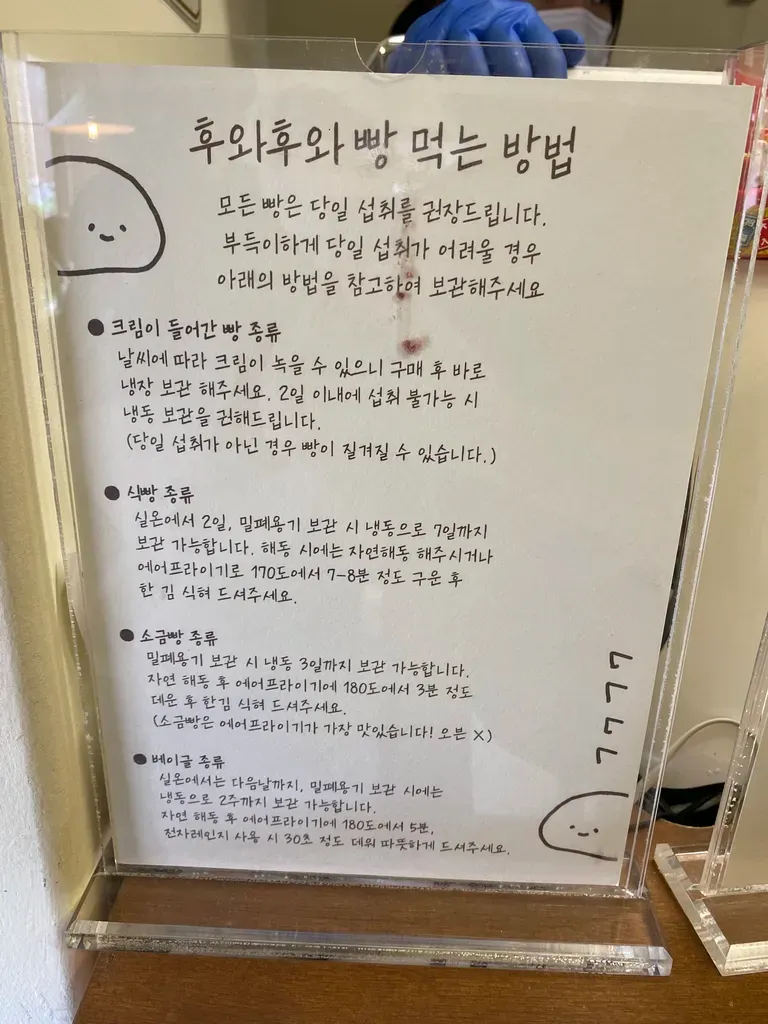 후와후와 빵 먹는 방법
모든 빵은 당일 섭취를 권장드립니다.
부득이하게 당일 섭취가 어려울 경우
아래의 방법을 참고하여 보관해주세요
● 크림이 들어간 빵 종류
날씨에 따라 크림이 녹을 수 있으니 구매 후 바로
냉장 보관 해주세요. 2일 이내에 섭취 불가능 시
냉동 보관을 권해드립니다.
(당일 섭취가 아닌 경우 빵이 질겨질 수 있습니다.)
● 식빵 종류
실온에서 2일, 밀폐용기 보관 시 냉동으로 7일까지
보관 가능합니다. 해동 시에는 자연해동 해주시거나
에어프라이기로 170도에서 7-8분 정도 구운 후
한 김 식혀 드셔주세요.
● 소금빵 종류
밀폐용기 보관 시 냉동 3일까지 보관 가능합니다.
자연 해동 후 에어프라이기에 180도에서 3분 정도
데운 후 한김 식혀 드셔주세요.
(소금빵은 에어프라이기가 가장 맛있습니다! 오븐 X)
● 베이글 종류
실온에서는 다음날까지, 밀폐용기 보관 시에는
냉동으로 2주까지 보관 가능합니다.
자연 해동 후 에어프라이기에 180도에서 5분,
전자레인지 사용 시 30초 정도 데워 따뜻하게 드셔주세요.
ㄱㄱㄱㄱ